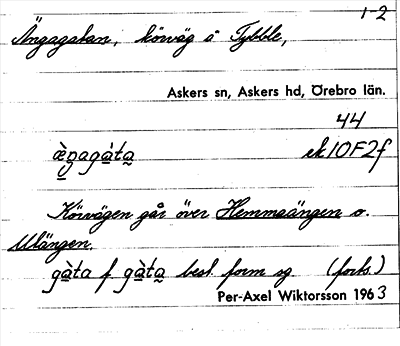 1-2
Ängagatan, körväg å Tybble,
Askers sn, Askers hd, Örebro län.
44
æ̀ŋagàta ek 10F2f
Körvägen går över Hemmaängen o.
Ulängen.
gàta f gàta best. form sg. (forts.)
Per-Axel Wiktorsson 1963